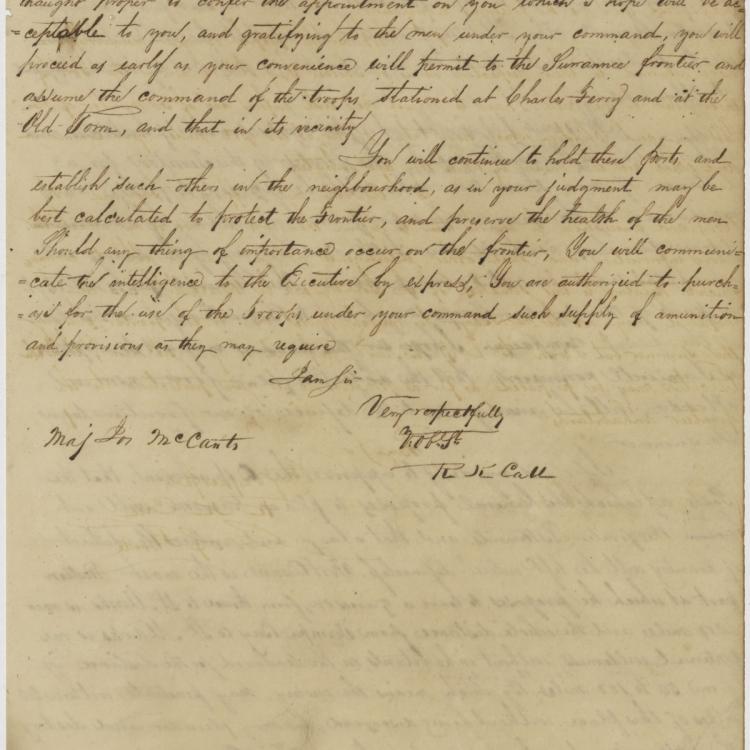 thought proper to confer the appointment on you which I hope will be ac
=ceptable to you, and gratifying to the men under your command, you will
proceed as early as your convenience will permit to the Suwannee frontier and
assume the command of the troops stationed at Charles Ferry and at the
Old-Town, and that in its vicinity
You will continue to hold these posts and
establish such others in the neighbourhood, as in your judgment may be
best calculated to protect the Frontier, and preserve the health of the men
Should any thing of importance occur on the frontier, You will communi=
=cate the intelligence to the Executive by express, You are authorized to purch=
=ase for the use of the Troops under your command such supply of amunition
and provisions as they may require
I am Sir
Very respectfully
Maj Jos McCants
Yr Ob. St
R K Call